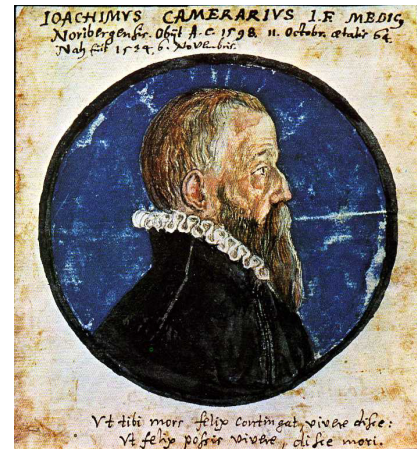 IOACHIMVS CAMERARIVS I.F. MEDIC
Noribergensis. Obijt A.C. 1598. 11. Octobr. ætatis 64.
Natus fuit 1534. 6. Novembris.
Vt tibi mors felix contingat, vivere disce:
Vt felix possis vivere, disce mori.